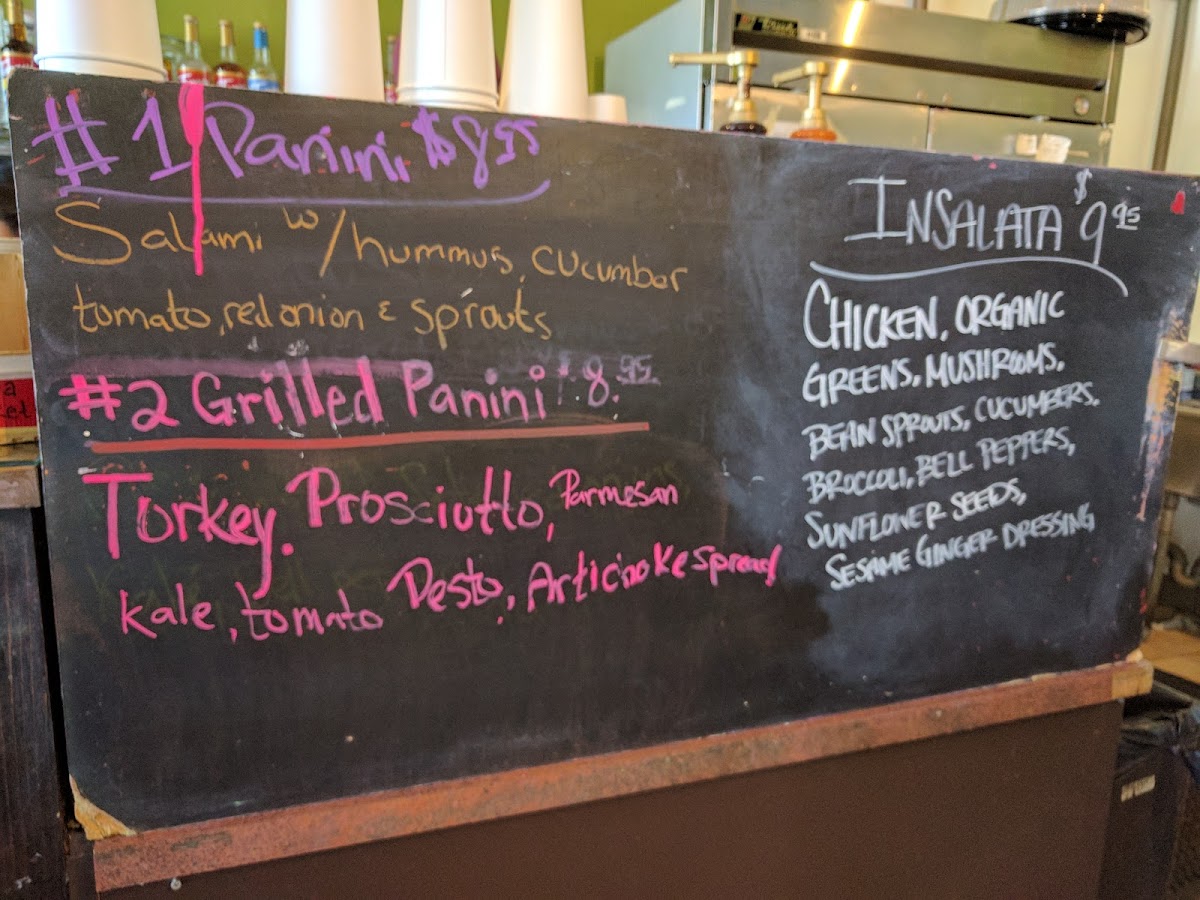 #1 Panini $8.95
Salami w/hummus, cucumber
tomato, red onion & sprouts
#2 Grilled Panini $8.95
Torkey. Prosciutto, Parmesan
kale, tomato Pesto, Artichoke spread
INSALATA $9.95
CHICKEN, ORGANIC
GREENS, MUSHROOMS,
BEAN SPROUTS, CUCUMBERS,
BROCCOLI, BELL PEPPERS,
SUNFLOWER SEEDS,
SESAME GINGER DRESSING